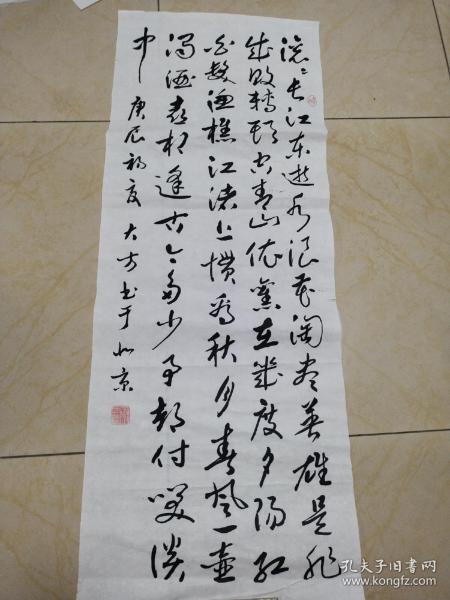 滚滚长江东逝水浪花淘尽英雄是非
成败转头空青山依旧在几度夕阳红
白发渔樵江渚上惯看秋月春风一壶
浊酒喜相逢古今多少事都付笑谈
中 庚辰初夏大方书于北京
孔夫子旧书网
www.kongfz.com